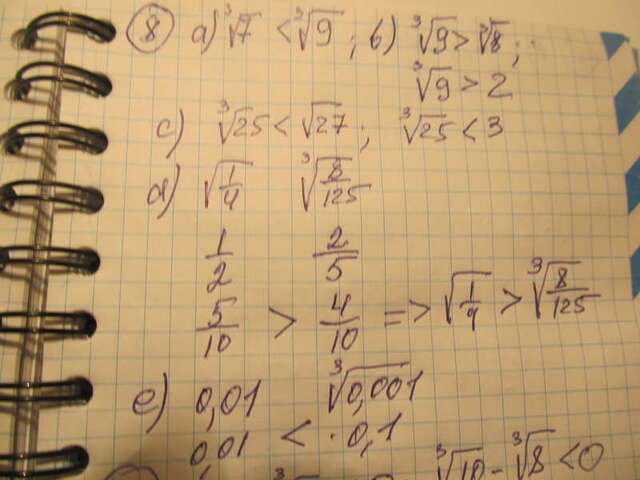 ⑧ a) ∛7 < ∛9 ; b) ∛9 > ∛8 ;
∛9 > 2
c) ∛25 < √27 ; ∛25 < 3
d) √(1/4) ∛(8/125)
1/2 2/5
5/10 > 4/10 => √(1/4) > ∛(8/125)
e) 0,01 ∛0,001
0,01 < 0,1
∛10 - ∛8 < 0